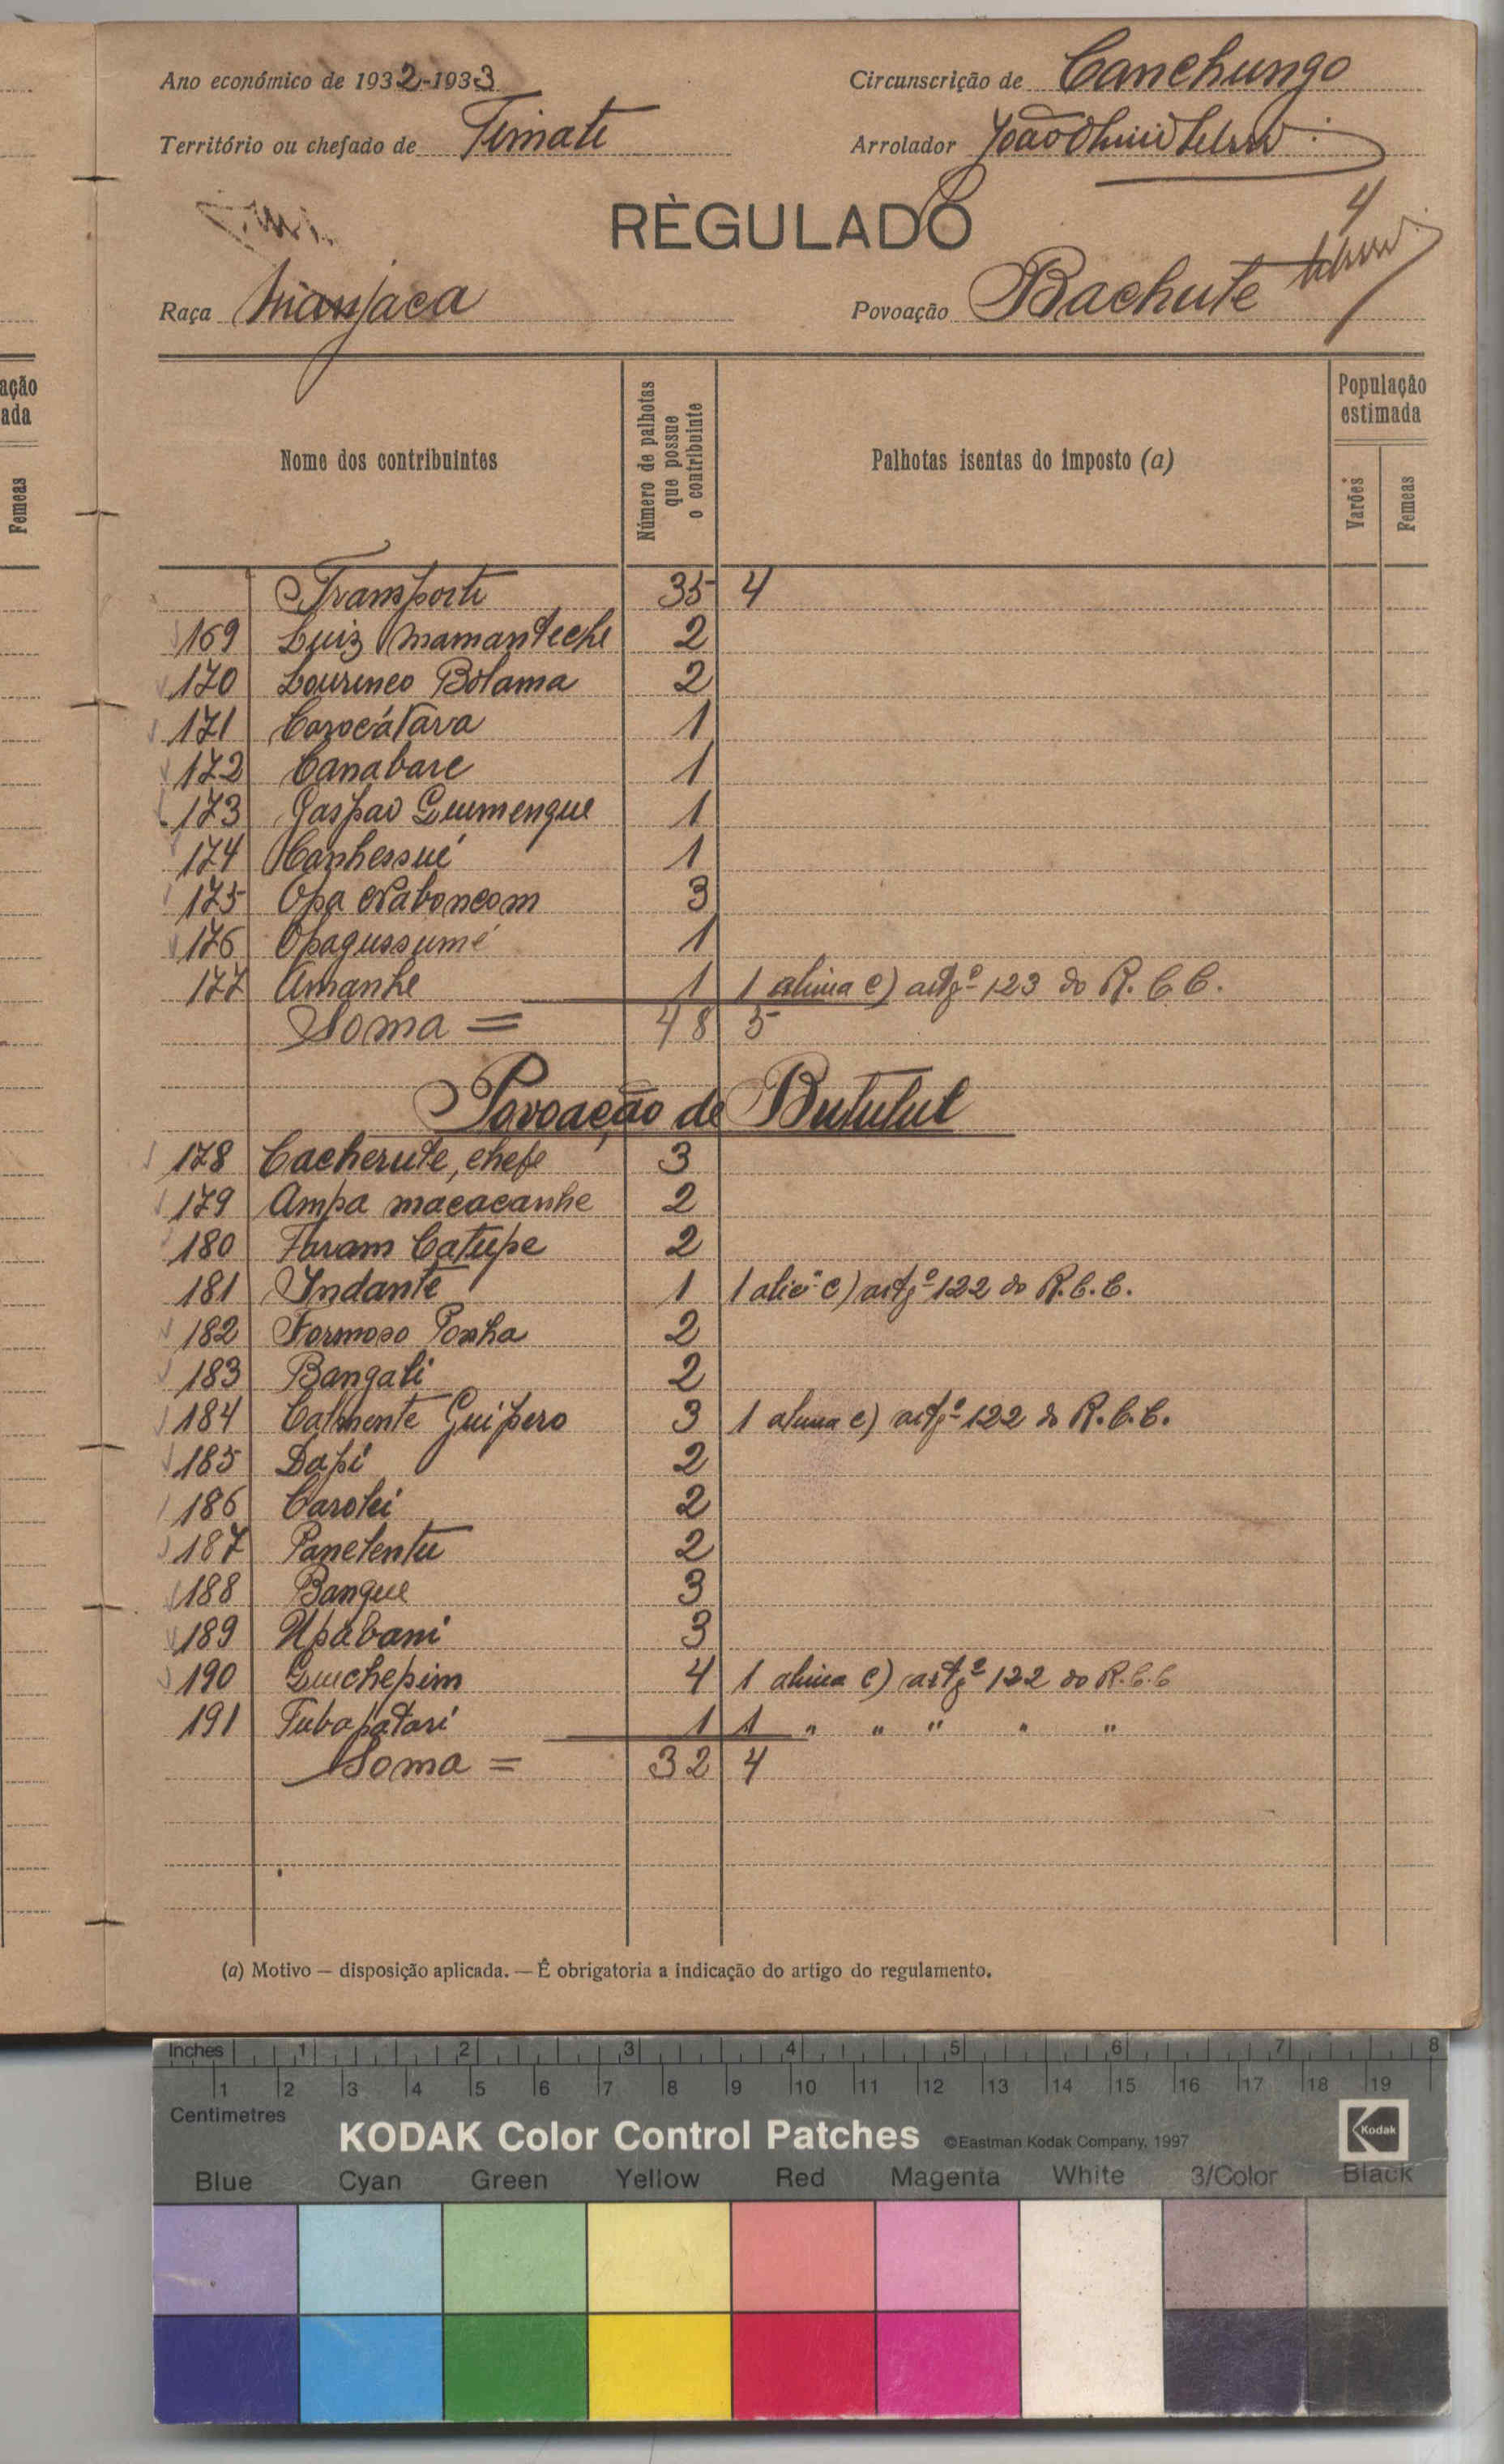 Ano económico de 1932-1933
Circunscrição de Canchungo
Território ou chefado de Timate
Arrolador João
RÈGULADO
4
Raça Manjaca
Povoação Bachute
ação
ada
Femeas
Nome dos contribuintes
Número de palhotas que possue o contribuinte
Palhotas isentas do imposto (a)
População estimada
Varões
Femeas
Transporte 35 4
169 Luiz Mamanteche 2
170 Lourenco Bolama 2
171 Carocátara 1
172 Canabare 1
173 Gaspar Guimengue 1
174 Canhessué 1
175 Opa Naboncom 3
176 Opagussumé 1
177 Amanhe 1 1 alinea c) artgº 123 do R. C. C.
Soma = 48 5
Povoação de Bututul
178 Cacherute, chefe 3
179 Ampa macacanhe 2
180 Faram Catupe 2
181 Indante 1 1 alieª c) artgº 122 do R.C.C.
182 Formoso Ponha 2
183 Bangali 2
184 Calmente Guipero 3 1 alinea c) artgº 122 do R.C.C.
185 Dapi 2
186 Carolei 2
187 Panetentu 2
188 Bangue 3
189 Upabani 3
190 Guichepim 4 1 alinea c) artgº 122 do R.C.C
191 Tubapatari 1 1 " " " " "
Soma = 32 4
(a) Motivo — disposição aplicada. — É obrigatoria a indicação do artigo do regulamento.
Inches 1 2 3 4 5 6 7 8
1 2 3 4 5 6 7 8 9 10 11 12 13 14 15 16 17 18 19
Centimetres
KODAK Color Control Patches ©Eastman Kodak Company, 1997 Kodak
Blue Cyan Green Yellow Red Magenta White 3/Color Black